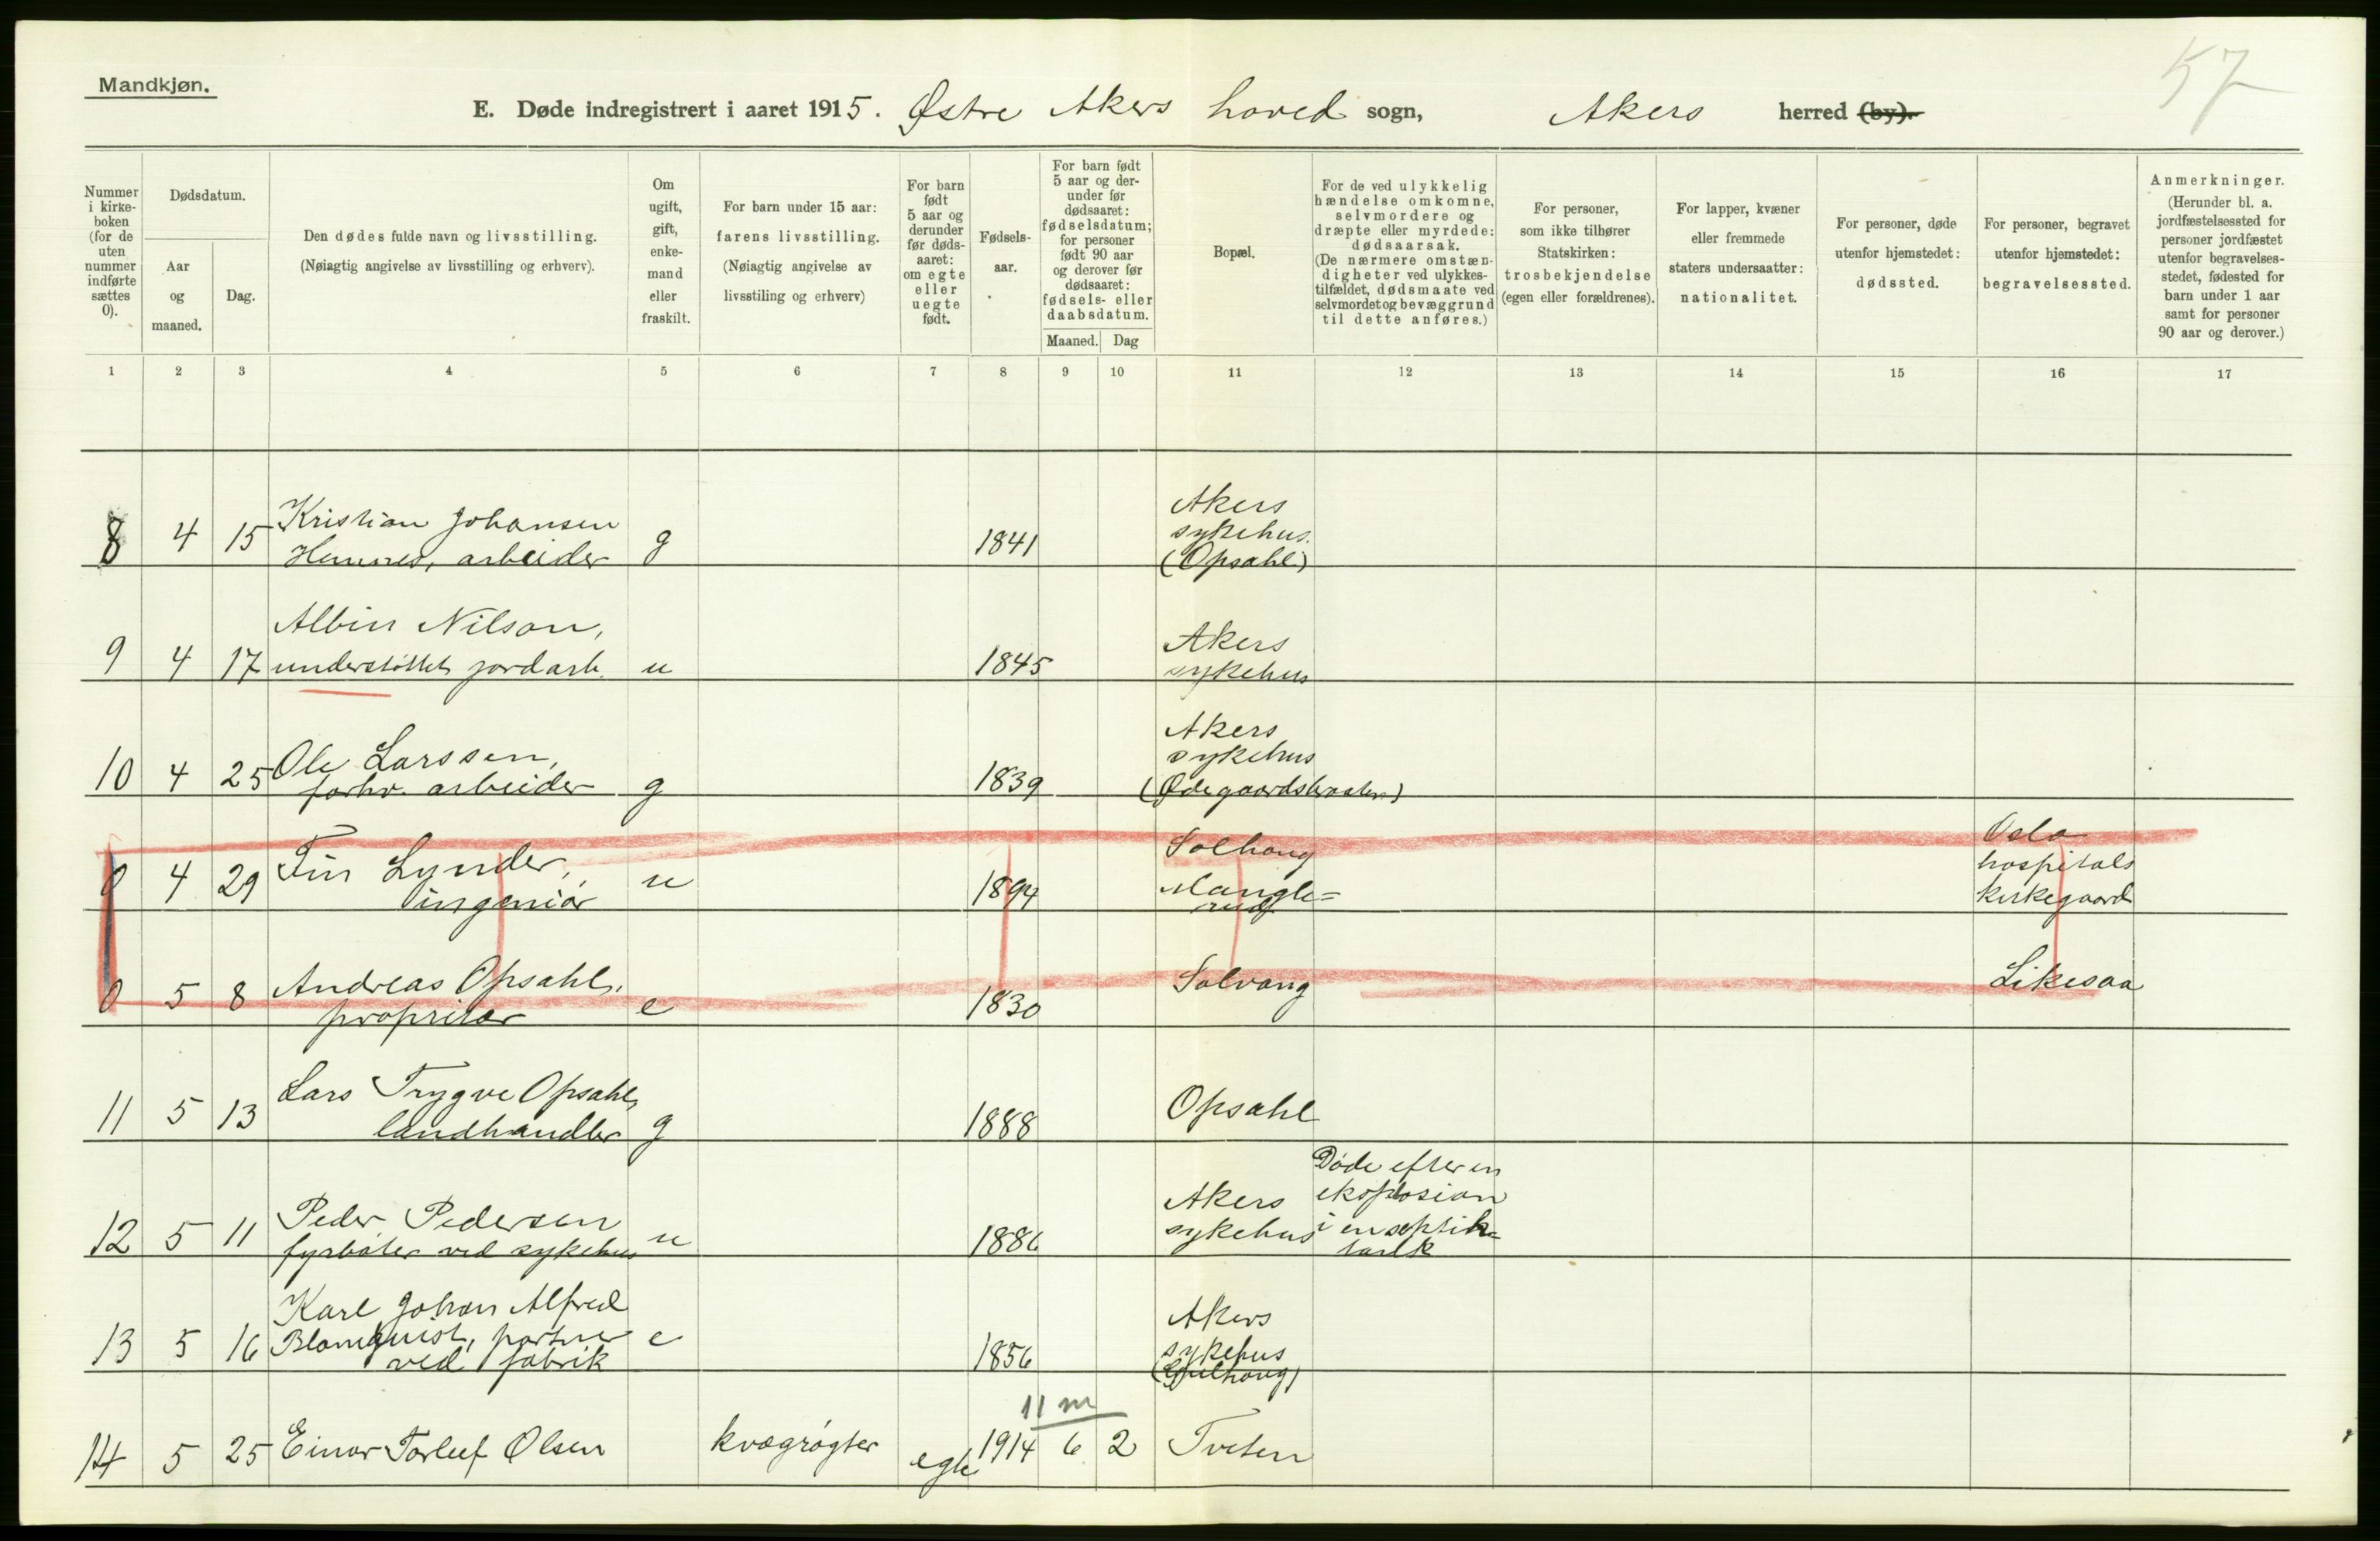 57
Mandkjøn.
E. Døde indregistrert i aaret 1915. Østre Akers hoved sogn, Akers herred (by).
Nummer i kirke-boken (for de uten nummer indførte sættes 0).
Dødsdatum.
Aar og maaned.
Dag.
Den dødes fulde navn og livsstilling.
(Nøiagtig angivelse av livsstilling og erhverv).
Om ugift, gift, enke-mand eller fraskilt.
For barn under 15 aar: farens livsstilling.
(Nøiagtig angivelse av livsstiling og erhverv)
For barn født 5 aar og derunder før døds-aaret: om egte eller uegte født.
Fødsels-aar.
For barn født 5 aar og der-under før dødsaaret: fødselsdatum; for personer født 90 aar og derover før dødsaaret: fødsels- eller daabsdatum.
Maaned. Dag
Bopæl.
For de ved ulykkelig hændelse omkomne, selvmordere og dræpte eller myrdede: dødsaarsak.
(De nærmere omstæn-digheter ved ulykkes-tilfældet, dødsmaate ved selvmordet og bevæggrund til dette anføres.)
For personer, som ikke tilhører Statskirken: trosbekjendelse (egen eller forældrenes).
For lapper, kvæner eller fremmede staters undersaatter: nationalitet.
For personer, døde utenfor hjemstedet: dødssted.
For personer, begravet utenfor hjemstedet: begravelsessted.
Anmerkninger.
(Herunder bl. a. jordfæstelsessted for personer jordfæstet utenfor begravelses-stedet, fødested for barn under 1 aar samt for personer 90 aar og derover.)
1 2 3 4 5 6 7 8 9 10 11 12 13 14 15 16 17
8 4 15 Kristian Johansen
arbeider g 1841 Akers
sykehus.
(Opsahl)
9 4 17 Albin Nilson,
understøttet jordarb. u 1845 Akers
sykehus
10 4 25 Ole Larssen,
forhv. arbeider g 1839 Akers
sykehus
0 4 29 Fin Lynder,
ingeniør u 1894 Solhaug
Mangle=
rud
Oslo
hospitals
kirkegaard
0 5 8 Andreas Opsahl,
propritær e 1830 Solvang Likesaa
11 5 13 Lars Trygve Opsahl,
landhandler g 1888 Opsahl
12 5 11 Peder Pedersen
fyrbøter ved sykehus u 1886 Akers
sykehus
Døde efter en
eksplosion
i en septik=
tank
13 5 16 Karl Johan Alfred
Blomquist, portner
ved fabrik e 1856 Akers
sykehus
14 5 25 Einar Torleif Olsen kvægrøgter egte 1914 6 2 Tveten
11 m